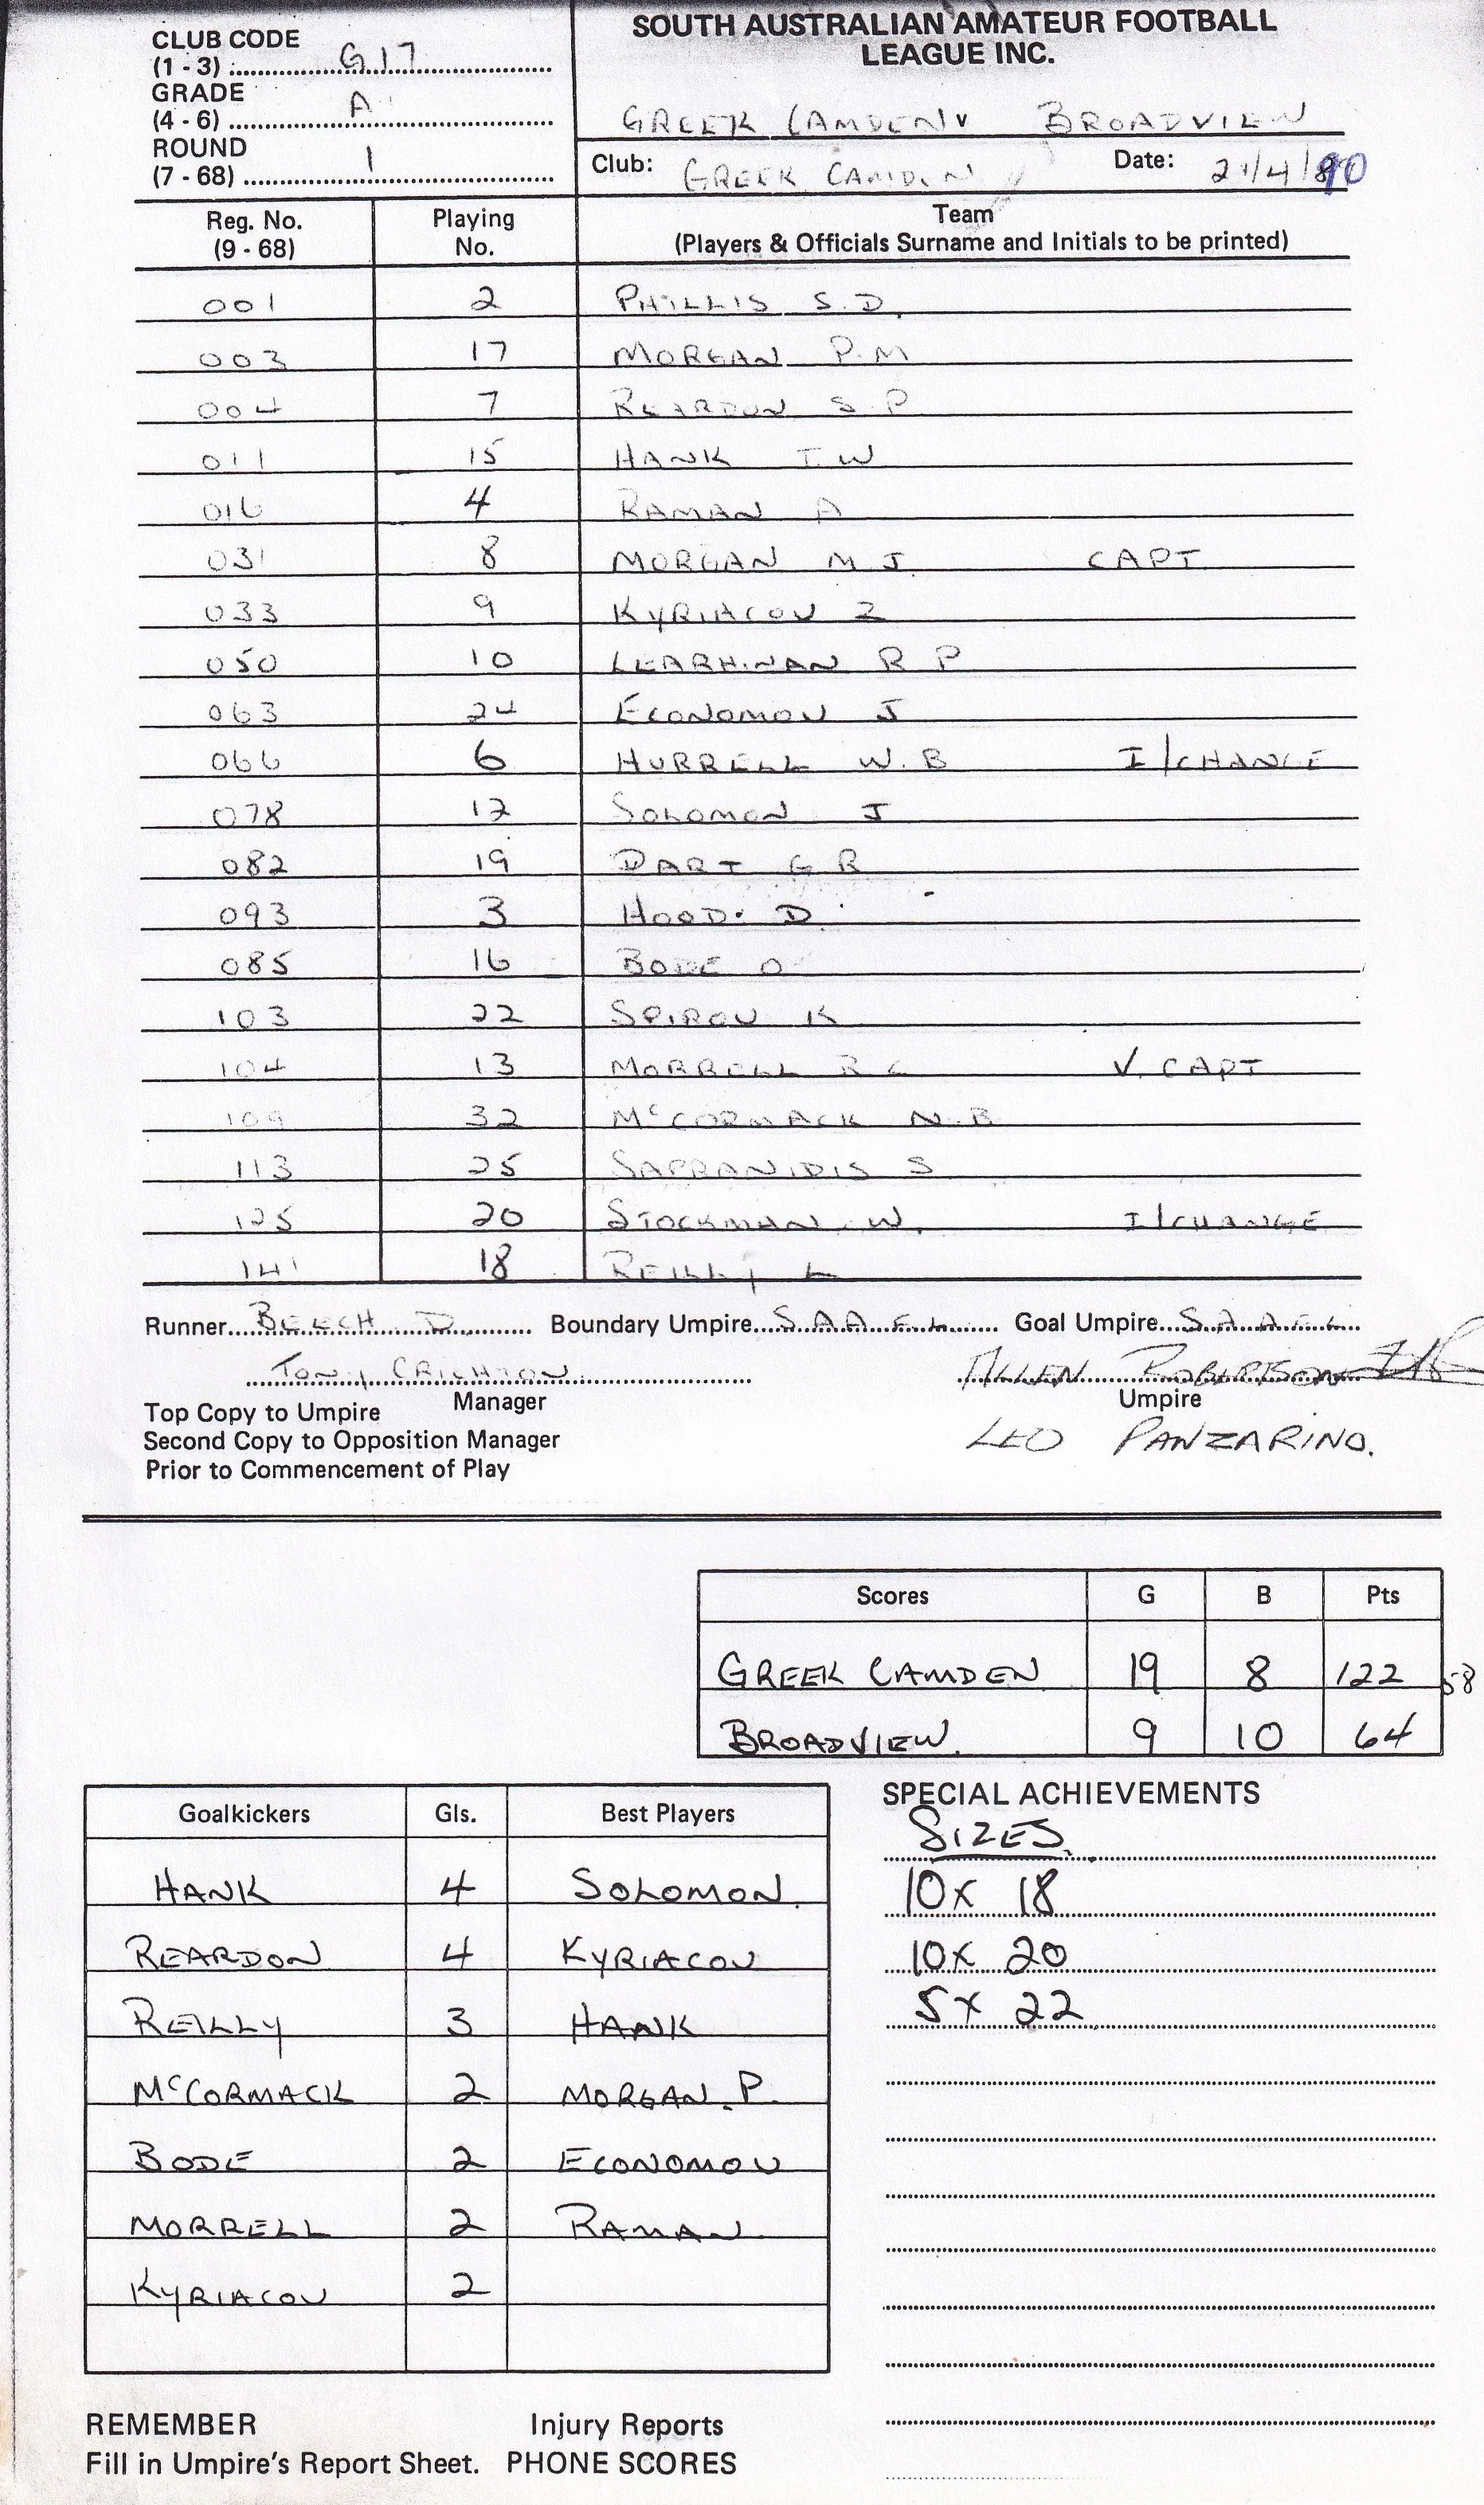 CLUB CODE
(1 - 3) G17
GRADE
(4 - 6) A
ROUND
(7 - 68) 1
SOUTH AUSTRALIAN AMATEUR FOOTBALL
LEAGUE INC.
GREEK CAMDEN v BROADVIEW
Club: GREEK CAMDEN Date: 21/4/90
Reg. No. (9 - 68) Playing No. Team (Players & Officials Surname and Initials to be printed)
001 2 PHILLIS S.D.
003 17 MORGAN P.M
004 7 REARDON S P
011 15 HANK T.W
016 4 RAMAN A
031 8 MORGAN M J. CAPT
033 9 KYRIACOU Z
050 10 LEARHINAN R P
063 24 ECONOMOU J
066 6 HURRELL W.B I/CHANGE
078 12 SOLOMON J
082 19 DART G R
093 3 HOOD D
085 16 BODE D
103 22 SPIROU K
104 13 MORRELL R C V. CAPT
109 32 McCORMACK N.B
113 25 SAPRANIDIS S
125 20 STOCKMAN W. I/CHANGE
141 18 REILLY L
Runner BEECH D. Boundary Umpire S.A.A.F.L. Goal Umpire S.A.A.F.L.
TONY CRICHTON ALLEN ROBERTSON
Manager Umpire
Top Copy to Umpire
Second Copy to Opposition Manager
Prior to Commencement of Play
LEO PANZARINO.
Scores G B Pts
GREEK CAMDEN 19 8 122 58
BROADVIEW. 9 10 64
Goalkickers Gls. Best Players
HANK 4 SOLOMON.
REARDON 4 KYRIACOU
REILLY 3 HANK
McCORMACK 2 MORGAN. P.
BODE 2 ECONOMOU
MORRELL 2 RAMAN
KYRIACOU 2
SPECIAL ACHIEVEMENTS
SIZES.
10x 18
10x 20
5x 22
REMEMBER Injury Reports
Fill in Umpire's Report Sheet. PHONE SCORES